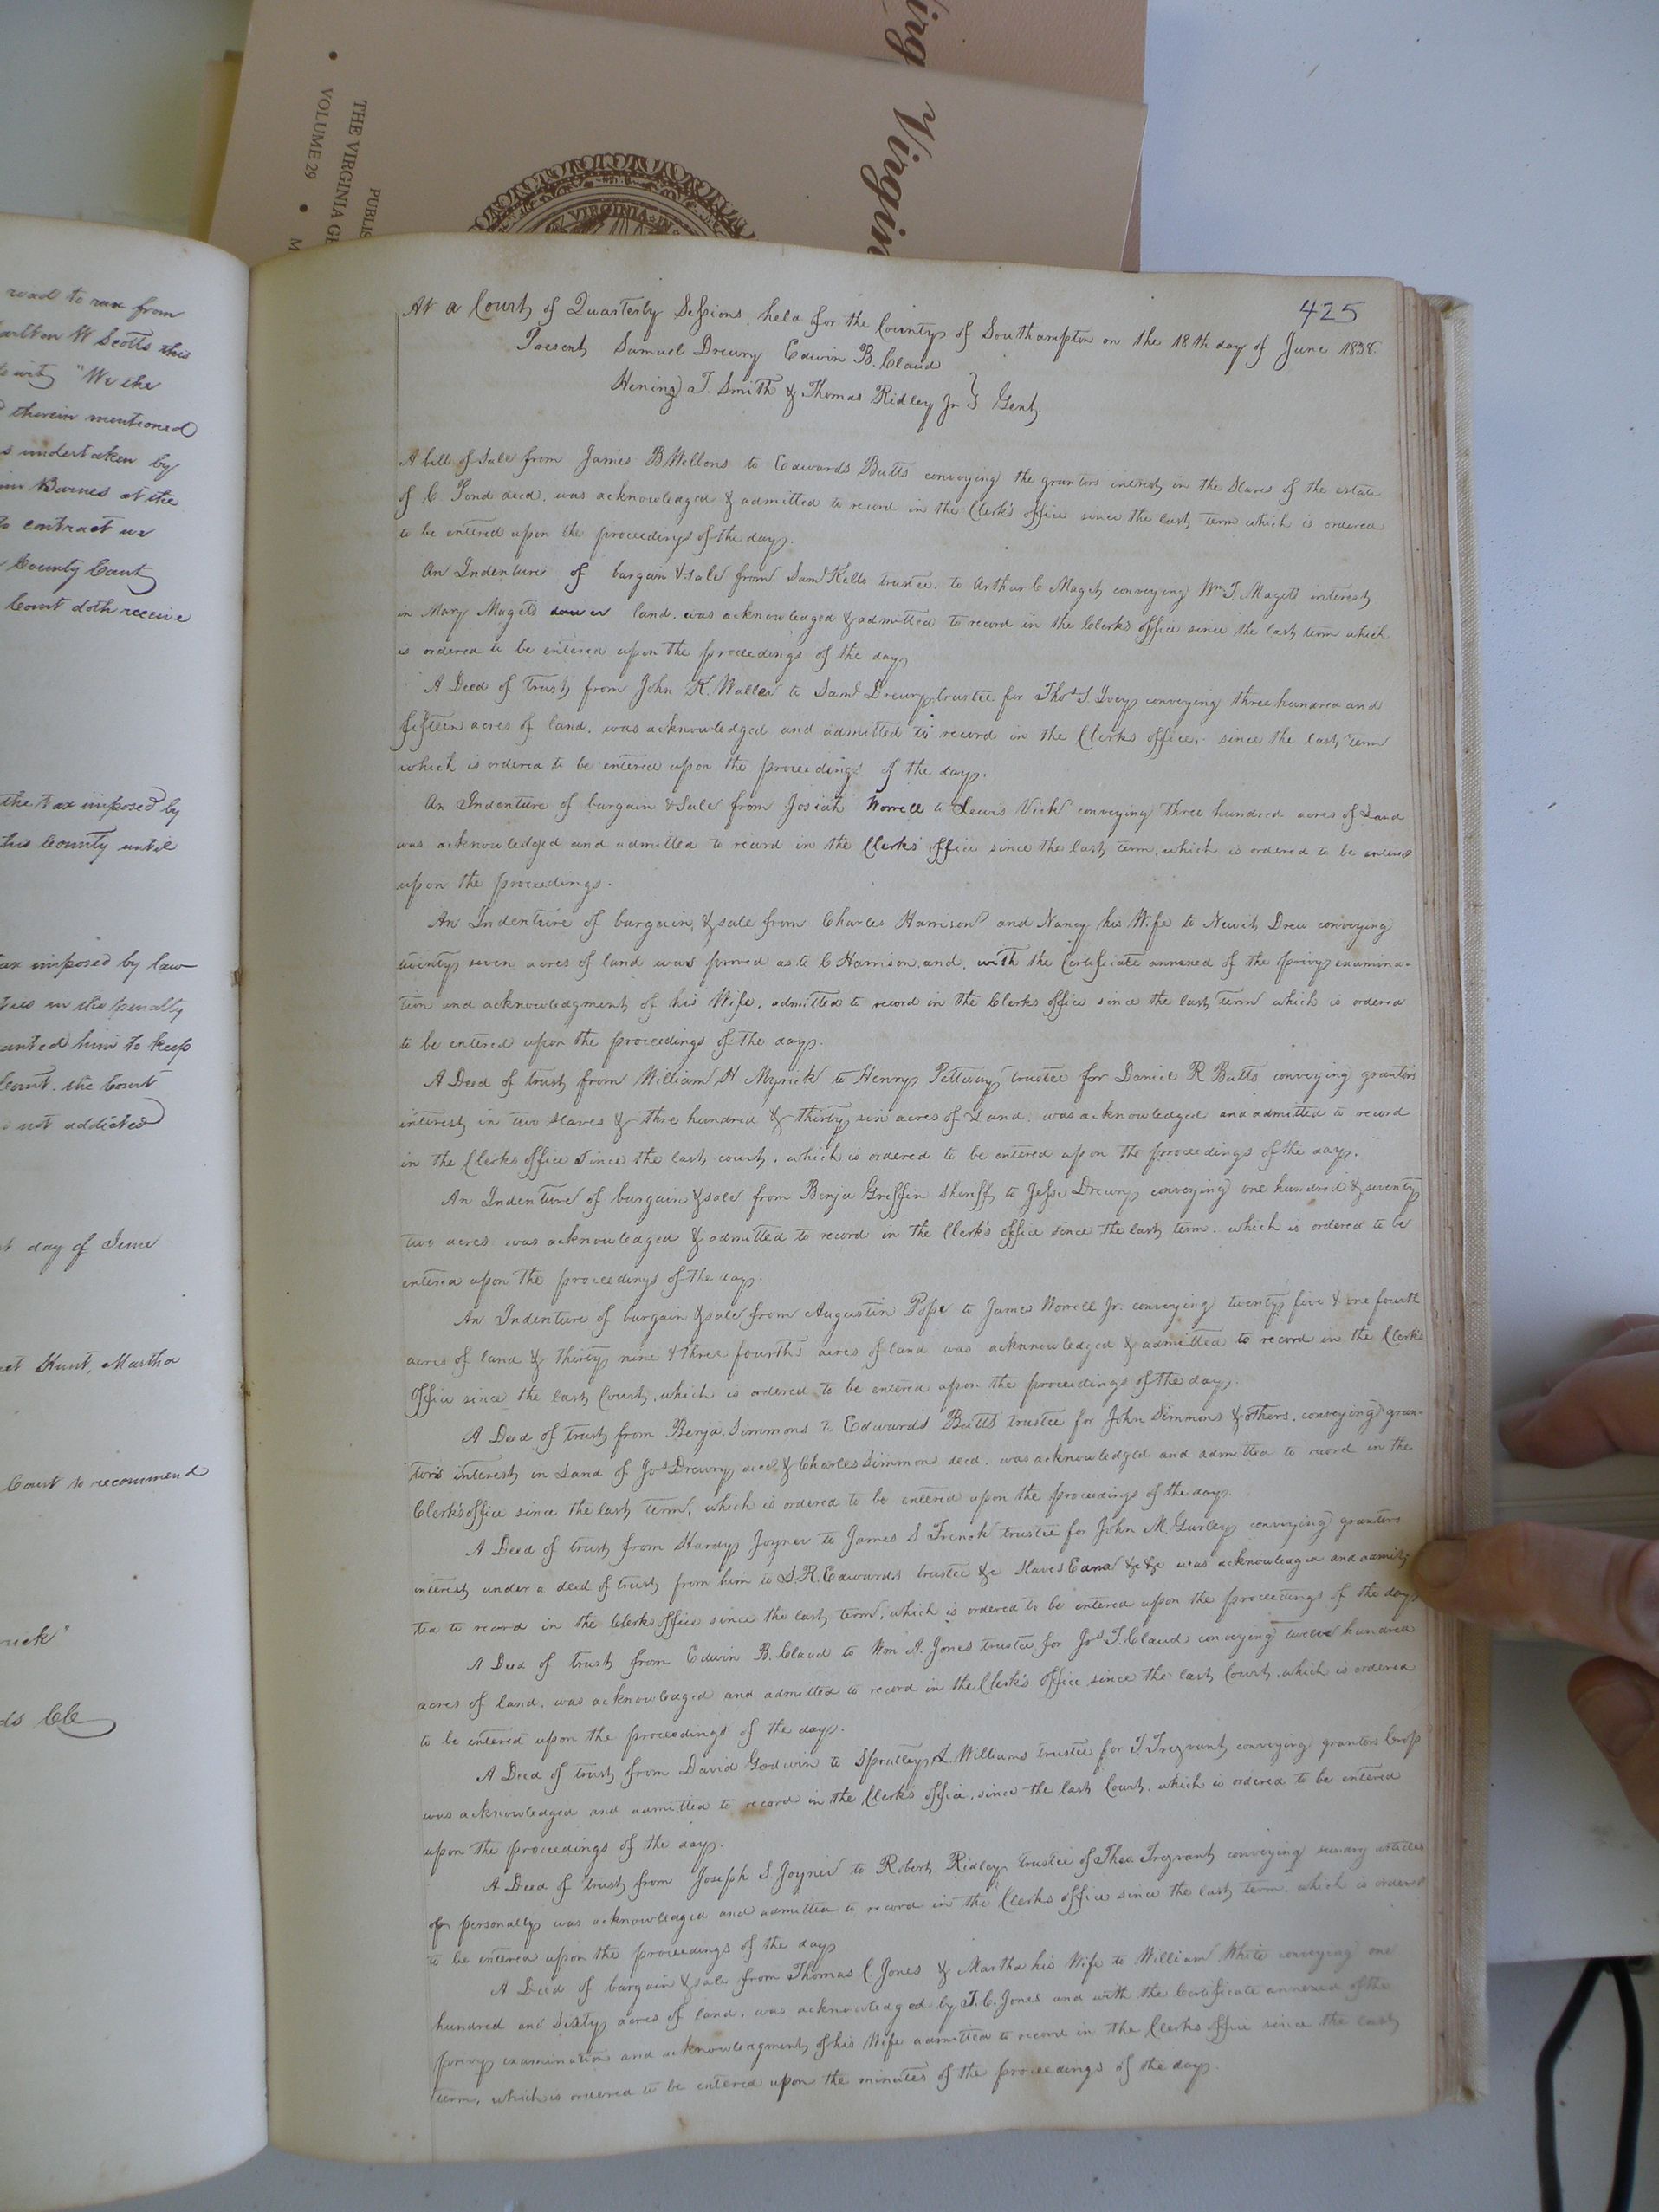 Virginia
Virginia
PUBLIS
THE VIRGINIA GE
VOLUME 29 • M
VIRGINIA
road to run from
Carlton W Scotts this
to wit "We the
therein mentioned
s undertaken by
Barnes at the
to contract we
County Court
Court doth receive
the tax imposed by
this County until
tax imposed by law
in the penalty
wanted him to keep
Court. the Court
not addicted
day of June
Hunt, Martha
Court to recommend
CC
425
At a Court of Quarterly Sessions held for the County of Southampton on the 18th day of June 1838.
Present Samuel Drewry Edwin B. Claud
Hening T. Smith & Thomas Ridley Jr } Gent.
A bill of Sale from James B Wellons to Edwards Butts conveying the grantors interest in the Slaves of the estate
of C Pond decd. was acknowledged & admitted to record in the Clerk's office since the last term which is ordered
to be entered upon the proceedings of the day.
An Indenture of bargain & sale from Saml Kello trustee, to Arthur C Maget conveying Wm T. Maget's interest
in Mary Magets dower land. was acknowledged & admitted to record in the Clerk's office since the last term which
is ordered to be entered upon the proceedings of the day
A Deed of trust from John K. Waller to Saml Drewry trustee for Thos S. Ivey conveying three hundred and
fifteen acres of land, was acknowledged and admitted to record in the Clerks office, since the last term
which is ordered to be entered upon the proceedings of the day.
An Indenture of bargain & Sale from Josiah Worrell to Lewis Vick conveying three hundred acres of Land
was acknowledged and admitted to record in the Clerks' office since the last term, which is ordered to be entered
upon the proceedings.
An Indenture of bargain, & sale from Charles Harrison and Nancy his Wife to Newit Drew conveying
twenty seven acres of land was proved as to C Harrison, and, with the Certificate annexed of the privy examina-
tion and acknowledgment of his Wife, admitted to record in the Clerks office since the last term which is ordered
to be entered upon the proceedings of the day.
A Deed of trust from William H Myrick to Henry Pettway trustee for Daniel R Butts conveying grantors
interest in two slaves & thre hundred & thirty six acres of Land. was acknowledged and admitted to record
in the Clerks office since the last court, which is ordered to be entered upon the proceedings of the day.
An Indenture of bargain & sale from Benja Griffin Sheriff to Jesse Drewry conveying one hundred & seventy
two acres was acknowledged & admitted to record in the Clerk's office since the last term. which is ordered to be
entered upon the proceedings of the day.
An Indenture of bargain & sale from Augustin Pope to James Worrell Jr. conveying twenty five & one fourth
acres of land & thirty nine & three fourths acres of land was acknnowledged & admitted to record in the Clerk's
Office since the last Court, which is ordered to be entered upon the proceedings of the day.
A Deed of trust from Benja. Simmons to Edwards Butts trustee for John Simmons & others, conveying gran-
tor's interest in Land of Jos Drewry decd & Charles Simmons decd. was acknowledged and admitted to record in the
Clerk's office since the last term, which is ordered to be entered upon the proceedings of the day.
A Deed of trust from Hardy Joyner to James S French trustee for John M. Gurley conveying grantors
interest under a deed of trust from him to S.R. Edwards trustee &c slaves Edna &c &c was acknowledged and admit-
ted to record in the Clerks office since the last term, which is ordered to be entered upon the proceedings of the day
A Deed of trust from Edwin B. Claud to Wm A. Jones trustee for Jos T. Claud conveying twelve hundred
acres of land. was acknowledged and admitted to record in the Clerk's office since the last Court, which is ordered
to be entered upon the proceedings of the day.
A Deed of trust from David Godwin to Spratley L. Williams trustee for T. Trezvant conveying grantors Crop
was acknowledged and admitted to record in the Clerk's office, since the last Court. which is ordered to be entered
upon the proceedings of the day.
A Deed of trust from Joseph S. Joyner to Robert Ridley trustee of Theo. Trezvant conveying sundry articles
of personalty was acknowledged and admitted to record in the Clerks office since the last term. which is ordered
to be entered upon the proceedings of the day
A Deed of bargain & sale from Thomas C. Jones & Martha his Wife to William White conveying one
hundred and Sixty acres of land, was acknowledged by T. C. Jones and with the Certificate annexed of the
privy examination and acknowledgment of his Wife admitted to record in the Clerks office since the last
term, which is ordered to be entered upon the minutes of the proceedings of the day.